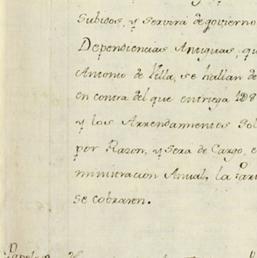 Subidos, y servirá de govierno
Dependencias Antiguas, qu
Antonio de Villa, se hallan de
en contra del que entrega
y los Arrendamientos
por Razon, y sera de Cargo, e
ministracion Anual, la
se cobraren.